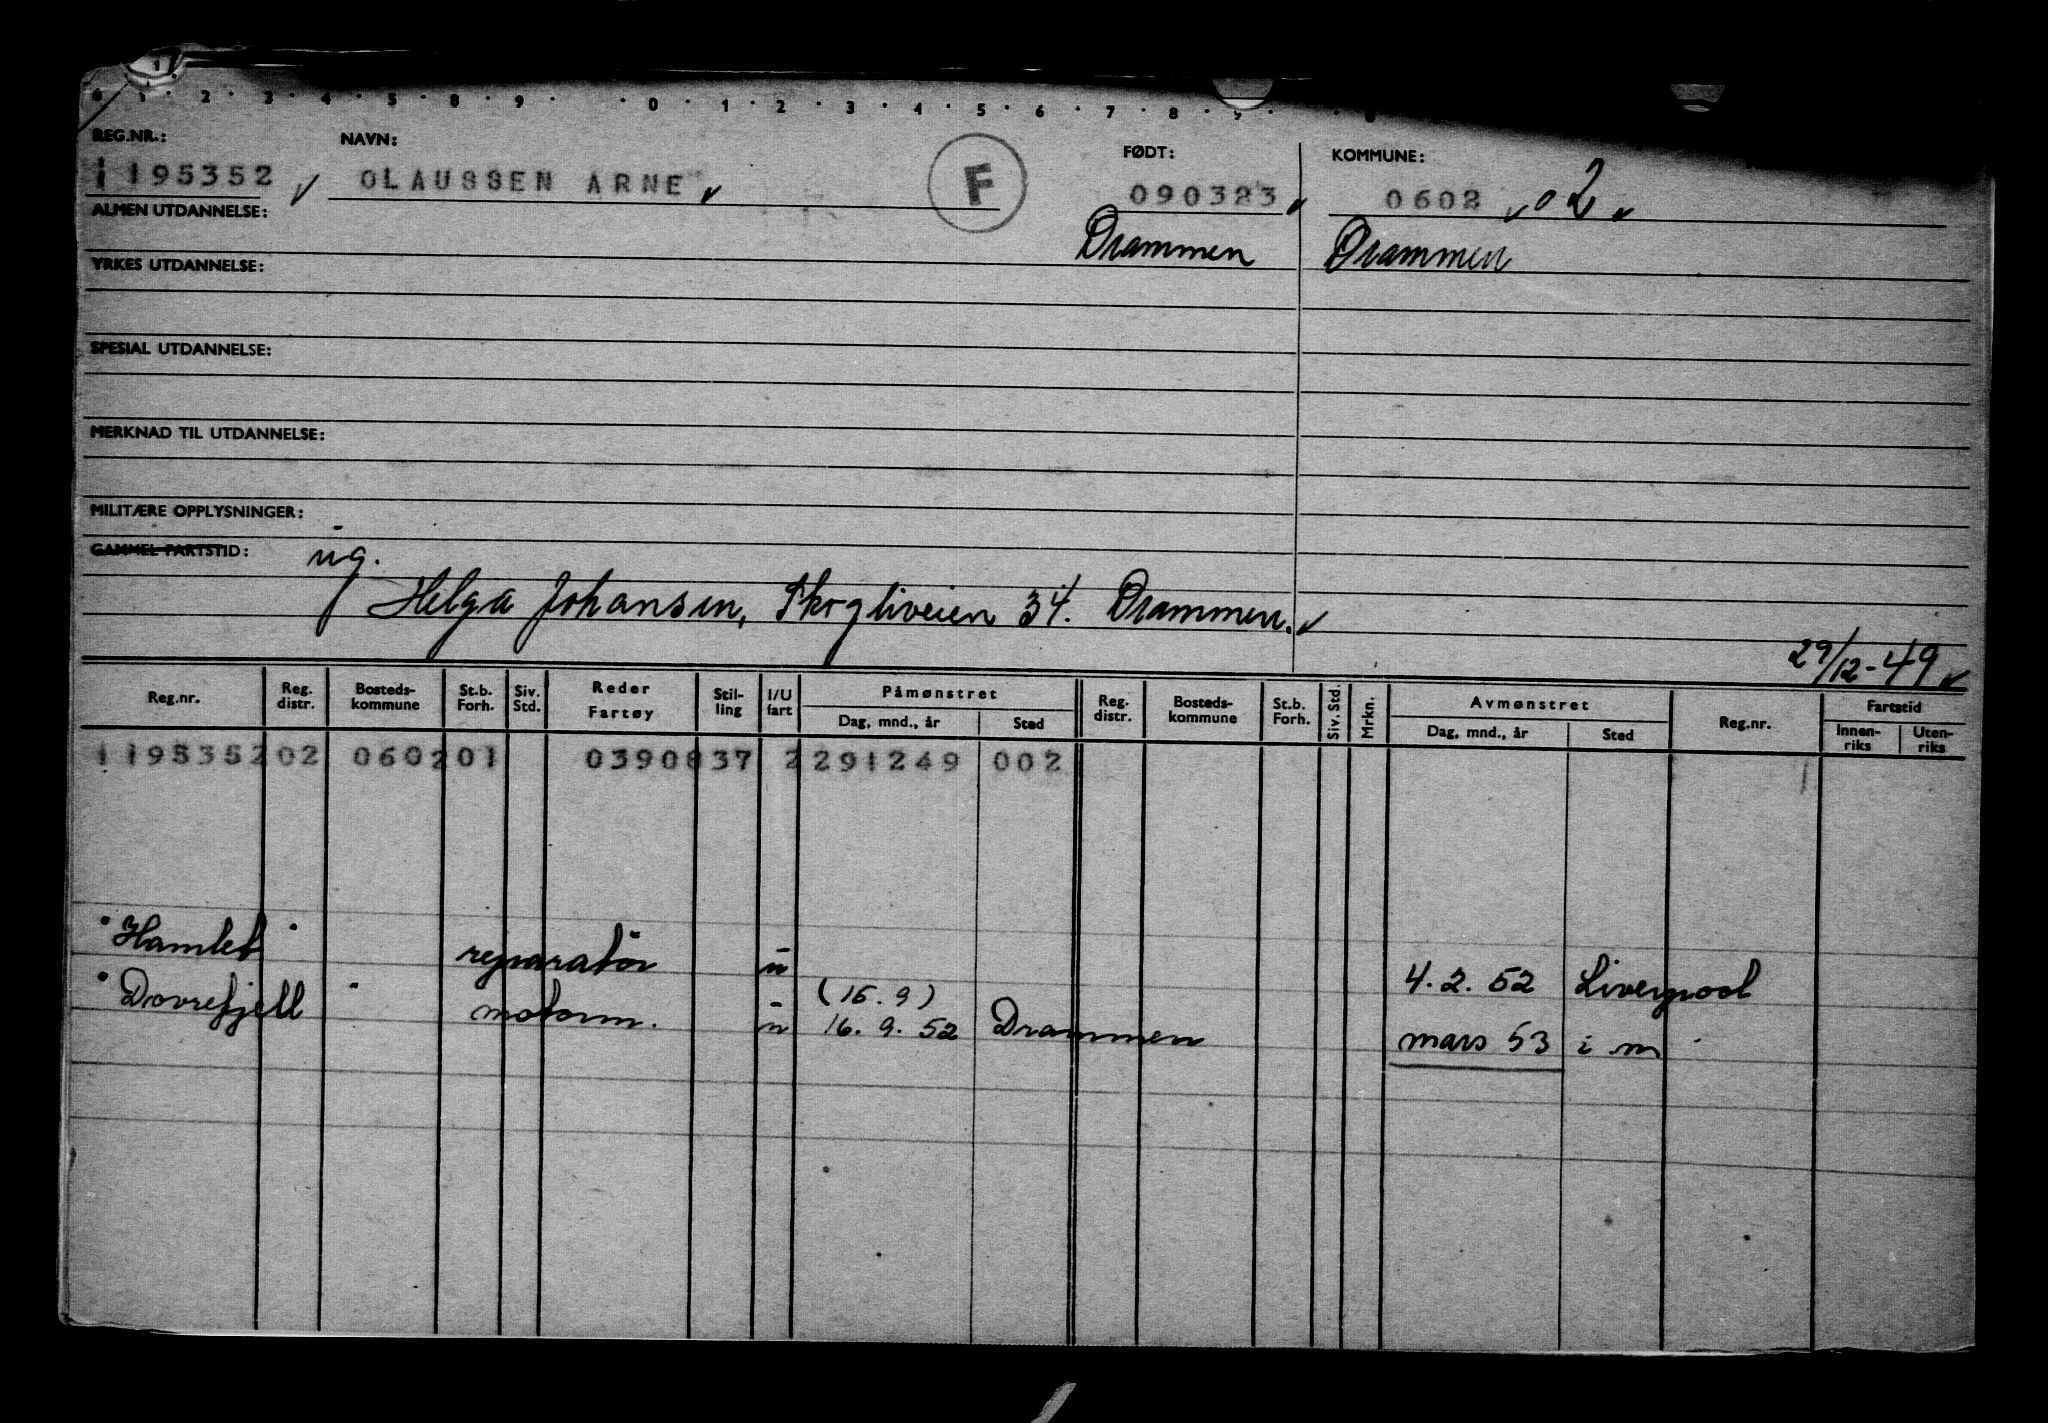 REG.NR.: NAVN: FØDT: KOMMUNE:
1195352 OLAUSSEN ARNE F 090323 0602 02
ALMEN UTDANNELSE: Drammen Drammen
YRKES UTDANNELSE:
SPESIAL UTDANNELSE:
MERKNAD TIL UTDANNELSE:
MILITÆRE OPPLYSNINGER:
GAMMEL FARTSTID: ug.
Helga Johansen, Skogliveien 34. Drammen.
29/12-49
Reg.nr. Reg. distr. Bosteds-kommune St.b. Forh. Siv. Std. Reder Fartøy Stil-ling I/U fart Påmønstret Dag, mnd., år Sted Reg. distr. Bosteds-kommune St.b. Forh. Siv. Std. Mrkn. Avmønstret Dag, mnd., år Sted Reg.nr. Fartstid Innen-riks Uten-riks
1195352 02 0602 01 0390837 2 291249 002
"Hamlet" reparatör u 4.2.52 Liverpool
(15.9)
"Dovrefjell" motorm. u 16.9.52 Drammen mars 53 i m